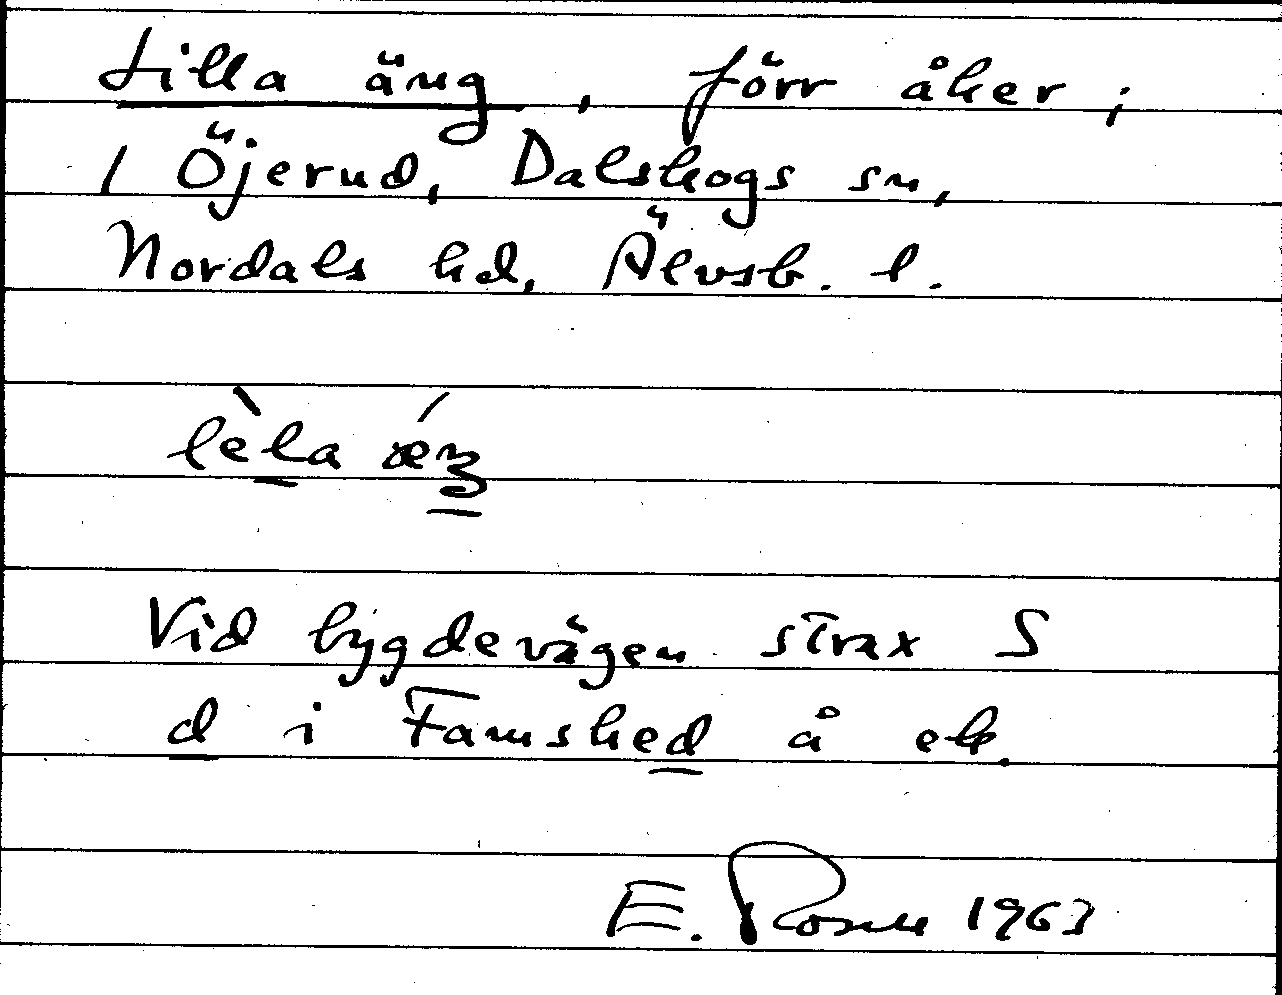 Lilla äng, förr åker;
1 Öjerud, Dalskogs sn,
Nordals hd, Älvsb. l.
lèla ǽŋ
Vid bygdevägen strax S
d i Famshed å ek.
E. Rosell 1963